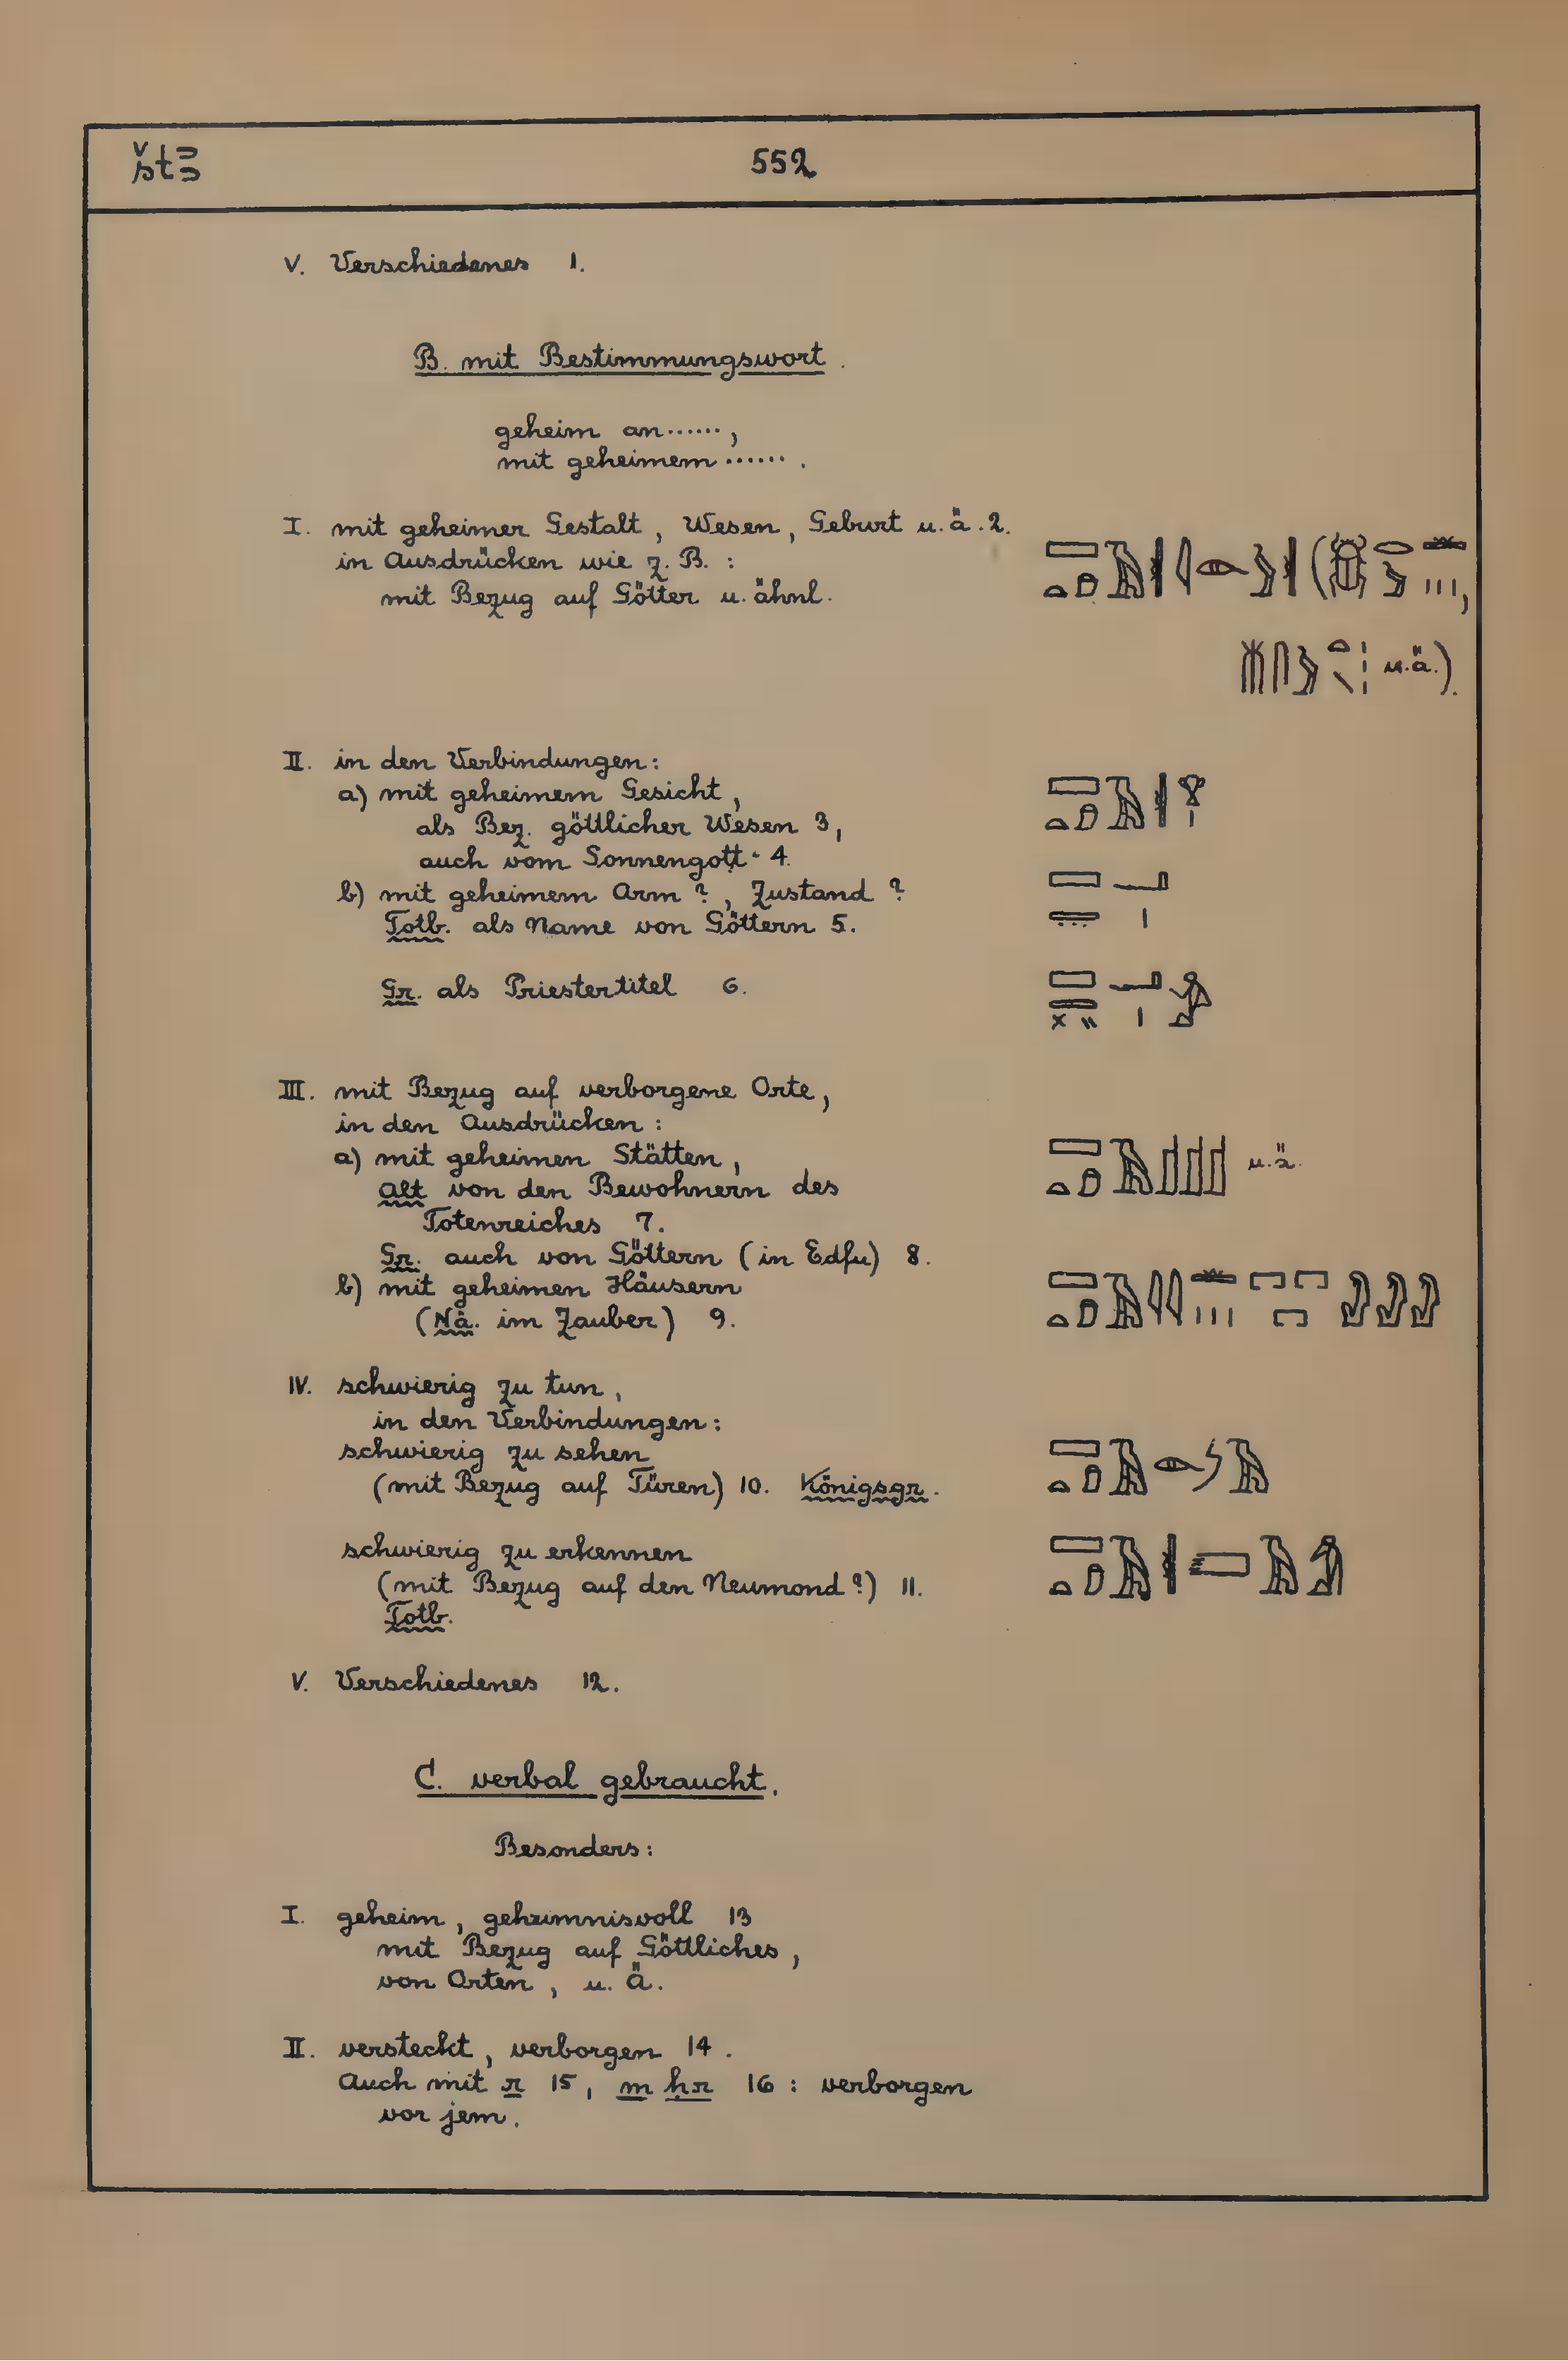 štꜣ
552
V. Verschiedenes 1.
B. mit Bestimmungswort.
geheim an ......,
mit geheimem ...... .
I. mit geheimer Gestalt, Wesen, Geburt u. ä. 2.
in Ausdrücken wie z. B. :
mit Bezug auf Götter u. ähnl.
u. ä.).
II. in den Verbindungen:
a) mit geheimem Gesicht,
als Bez. göttlicher Wesen 3,
auch vom Sonnengott 4.
b) mit geheimem Arm ?, Zustand ?
Totb. als Name von Göttern 5.
Gr. als Priestertitel 6.
III. mit Bezug auf verborgene Orte,
in den Ausdrücken :
a) mit geheimen Stätten,
u. ä.
alt von den Bewohnern des
Totenreiches 7.
Gr. auch von Göttern (in Edfu) 8.
b) mit geheimen Häusern
(Nä. im Zauber) 9.
IV. schwierig zu tun,
in den Verbindungen:
schwierig zu sehen
(mit Bezug auf Türen) 10. Königsgr.
schwierig zu erkennen
(mit Bezug auf den Neumond ?) 11.
Totb.
V. Verschiedenes 12.
C. verbal gebraucht.
Besonders:
I. geheim, geheimnisvoll 13
mit Bezug auf Göttliches,
von Orten, u. Ä.
II. versteckt, verborgen 14.
Auch mit r 15, m ḥr 16 : verborgen
vor jem.